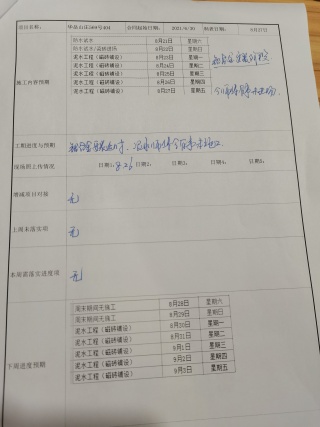 项目名称: 华岳山庄569号404 合同起始日期: 2021/6/20 检查日期: 8月27日
施工内容预期
防水试水 8月21日 星期六
防水试水/瓷砖进场 8月22日 星期日
泥水工程（磁砖铺设） 8月23日 星期一
泥水工程（磁砖铺设） 8月24日 星期二
泥水工程（磁砖铺设） 8月25日 星期三
泥水工程（磁砖铺设） 8月26日 星期四
泥水工程（磁砖铺设） 8月27日 星期五
工期进度与预期
现场照上传情况 日期1: 8.26 日期2: 日期3: 日期4: 日期5:
增减项目对接 无
上周未落实项 无
本周需落实进度项 无
下周进度预期
周末期间无施工 8月28日 星期六
周末期间无施工 8月29日 星期日
泥水工程（磁砖铺设） 8月30日 星期一
泥水工程（磁砖铺设） 8月31日 星期二
泥水工程（磁砖铺设） 9月1日 星期三
泥水工程（磁砖铺设） 9月2日 星期四
泥水工程（磁砖铺设） 9月3日 星期五